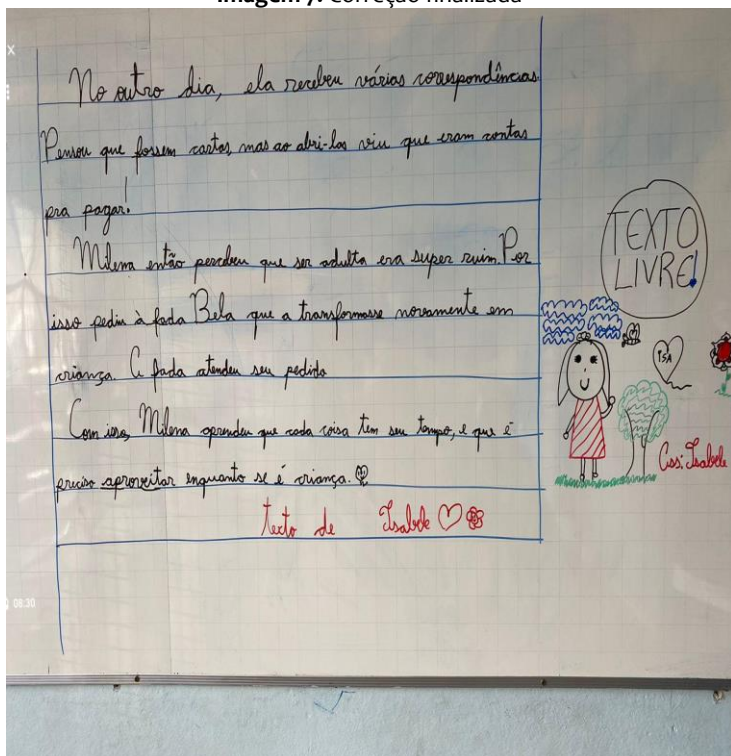 Imagem 7. Correção finalizada
No outro dia, ela recebeu várias correspondências.
Pensou que fossem cartas, mas ao abri-las viu que eram contas
pra pagar!
Milena então percebeu que ser adulta era super ruim. Por
isso pediu à fada Bela que a transformasse novamente em
criança. A fada atendeu seu pedido
Com isso, Milena aprendeu que cada coisa tem seu tempo, e que é
preciso aproveitar enquanto se é criança.
texto de Isabele
TEXTO
LIVRE!
ISA
Ass: Isabele
08:30